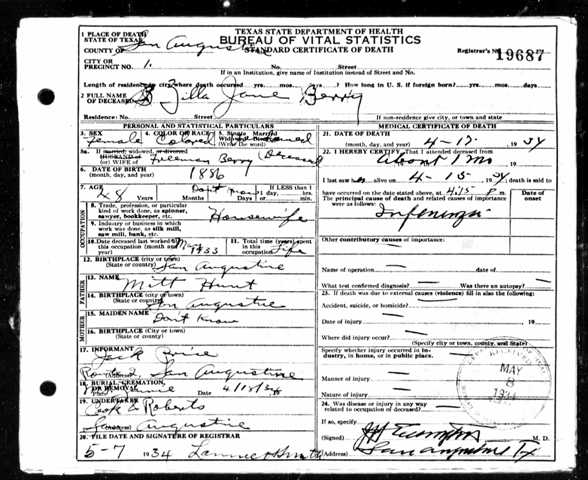 TEXAS STATE DEPARTMENT OF HEALTH
BUREAU OF VITAL STATISTICS
STANDARD CERTIFICATE OF DEATH
1 PLACE OF DEATH
STATE OF TEXAS
COUNTY OF San Augustine
Registrar's No. 19687
CITY OR
PRECINCT NO. 1. No. Street
If in an Institution, give name of Institution instead of Street and No.
Length of residence where death occurred yrs. mos. days. How long in U. S. if foreign born? yrs. mos. days.
2 FULL NAME
OF DECEASED Zilla Jane Berry
Residence: No. Street
If non-residence give city, or town and state
PERSONAL AND STATISTICAL PARTICULARS
3. SEX
Female
4. COLOR OR RACE
Colored
5. Single Married
(Write the word)
5a. If married, widowed, or divorced
HUSBAND OF
(or) WIFE OF Freeman Berry (Deceased
6. DATE OF BIRTH
(month, day, year) 1886
7. AGE
48 Years Months Days
Dont Know
IF LESS than
1 day, hrs. min.
OCCUPATION
8. Trade, profession, or particular
kind of work done, as spinner,
sawyer, bookkeeper, etc.
Housewife
9. Industry or business in
which work was done, as silk mill,
saw mill, bank, etc.
10. Date deceased last worked at
this occupation (month and
year) 1933
11. Total time (years)
spent in this
occupation Life
12. BIRTHPLACE (city or town)
(State or country) San Augustine
FATHER
13. NAME
Mitt Hunt
14. BIRTHPLACE (city or town)
(State or country) San Augustine
MOTHER
15. MAIDEN NAME
Dont Know
16. BIRTHPLACE (City or town)
(State or country)
17. INFORMANT
Jack
San Augustine
18. BURIAL, CREMATION,
OR REMOVAL
Place Date 4/13/34
19. UNDERTAKER
Cook & Roberts
San Augustine
20. FILE DATE AND SIGNATURE OF REGISTRAR
5-7 1934
MEDICAL CERTIFICATE OF DEATH
21. DATE OF DEATH
(month, day, year) 4-12- , 1934
22. I HEREBY CERTIFY, That I attended deceased from
About 1 mo. , 19
I last saw alive on 4-15 , 1934, death is said to
have occurred on the date stated above, at 4:15 P m.
The principal cause of death and related causes of importance
were as follows:
Date of
onset
Other contributory causes of importance:
Name of operation date of
What test confirmed diagnosis? Was there an autopsy?
23. If death was due to external causes (violence) fill in also the following:
Accident, suicide, or homicide?
Date of injury 19
Where did injury occur?
(Specify city or town, county, and State)
Specify whether injury occurred in in-
dustry, in home, or in public place.
Manner of injury
Nature of injury
MAY
8
1934
24. Was disease or injury in any way
related to occupation of deceased?
If so, specify
(Signed) M. D.
(Address) San Augustine Tx